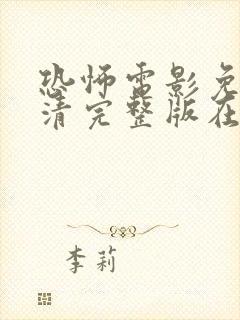 恐怖电影免
清完整版在
李莉